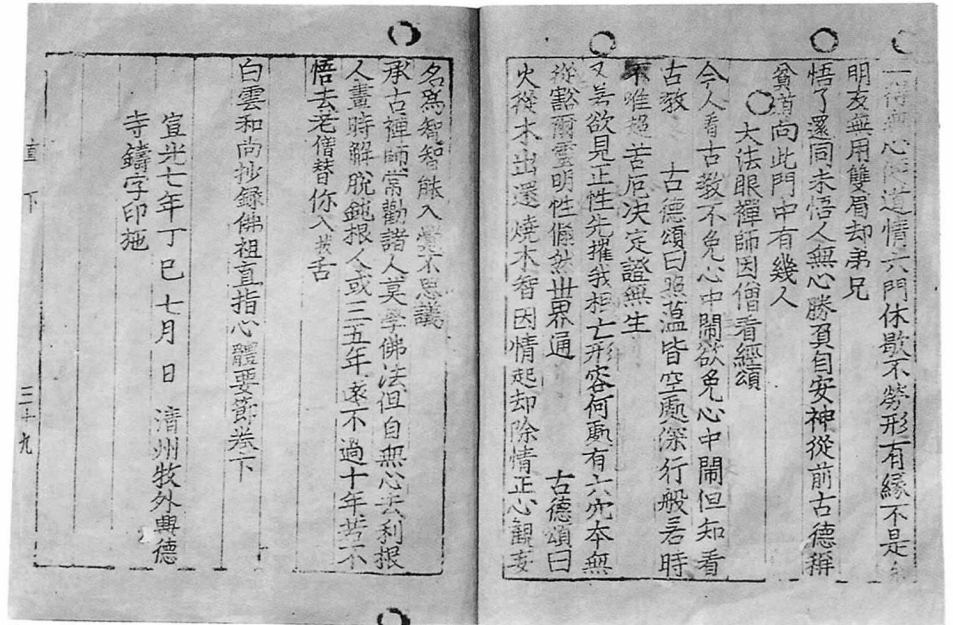 一得無心便道情六門休歇不勞形有緣不是
朋友無用雙眉却弟兄
悟了還同未悟人無心勝負自安神從前古德稱
貧道向此門中有幾人
大法眼禪師因僧看經頌
今人看古敎不免心中鬧欲免心中鬧但知看
古敎 古德頌曰照蘊皆空處深行般若時
不唯超苦厄決定證無生
又若欲見正性先摧我相亡形容何處有六穴本無
從豁爾靈明性翛然世界通 古德頌曰
火從木出還燒木智因情起却除情正心觀妄
名爲智智能入覺不思議
承古禪師常勸諸人莫學佛法但自無心去利根
人晝時解脫鈍根人或三五年遠不過十年若不
悟去老僧替你入拔舌
白雲和尙抄錄佛祖直指心體要節卷下
宣光七年丁巳七月 日 淸州牧外興德
寺鑄字印施
直 下
三十九